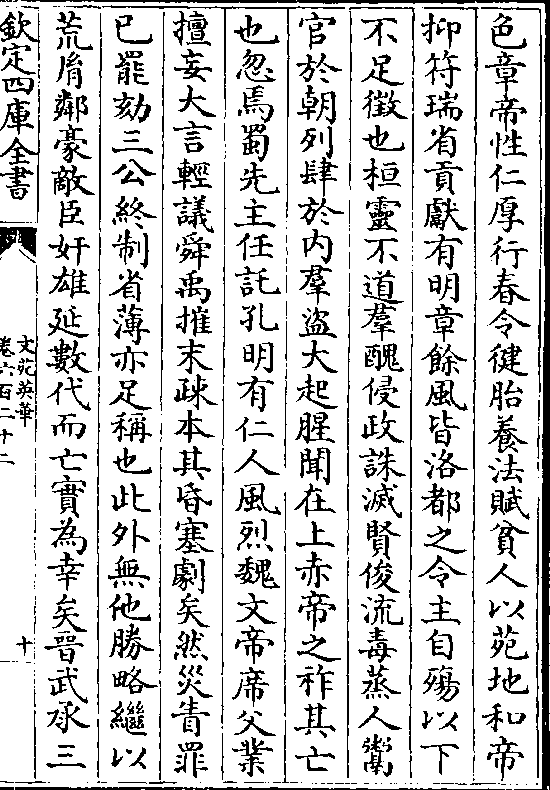 色章帝性仁厚行春令徤胎養法賦貧人以苑地和帝
抑符瑞省貢獻有明章餘風皆洛都之令主自殤以下
不足徵也桓靈不道羣醜侵政誅滅賢俊流毒蒸人鬻
官於朝列肆於内羣盜大起腥聞在上赤帝之祚其亡
也忽焉蜀先主任託孔明有仁人風烈魏文帝席父業
擅妄大言輕議舜禹摧末疎本其昏塞劇矣然災眚罪
已罷劾三公終制省薄亦足稱也此外無他勝略繼以
荒㣧鄰豪敵臣奸雄延數代而亡實為幸矣晉武承三
欽定四庫全書
文苑英華
卷六百二十二
十